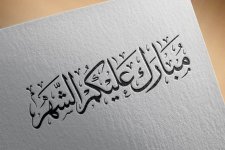 مُبَارَك عَلَيْكُم الشَّهْر